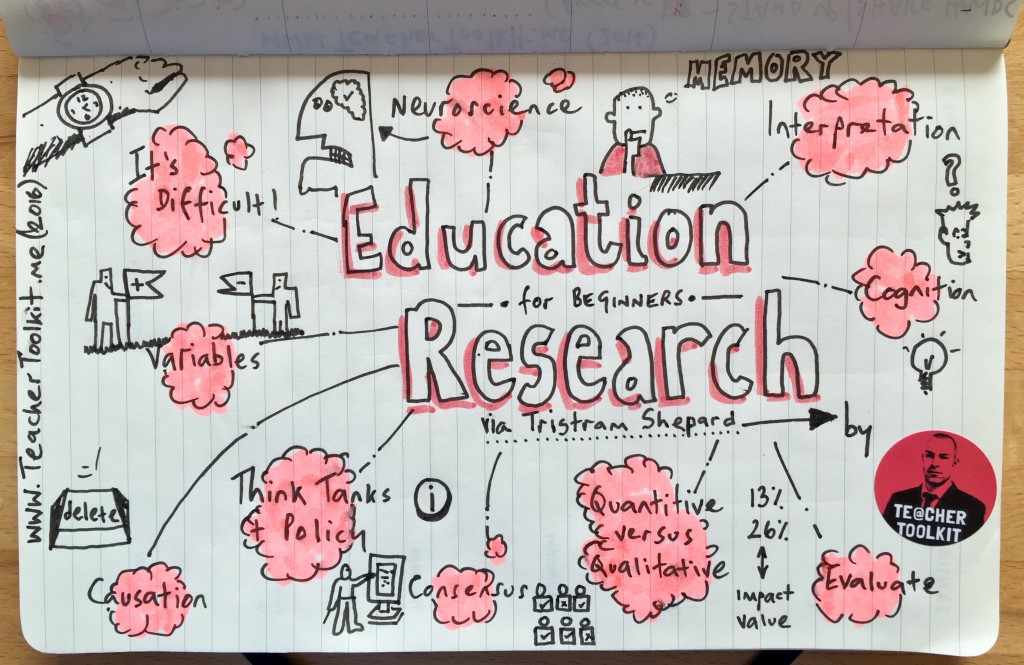 MEMORY
Neuroscience
Interpretation
It's
Difficult!
Education
+
-
for BEGINNERS
Cognition
Research
Variables
via Tristram Shepard
by
www.TeacherToolkit.me (2016)
TE@CHER
TOOLKIT
delete
Think Tanks
+ Policy
i
Quantitive
versus
Qualitative
13%
26%
Impact
value
Causation
Consensus
Evaluate
?